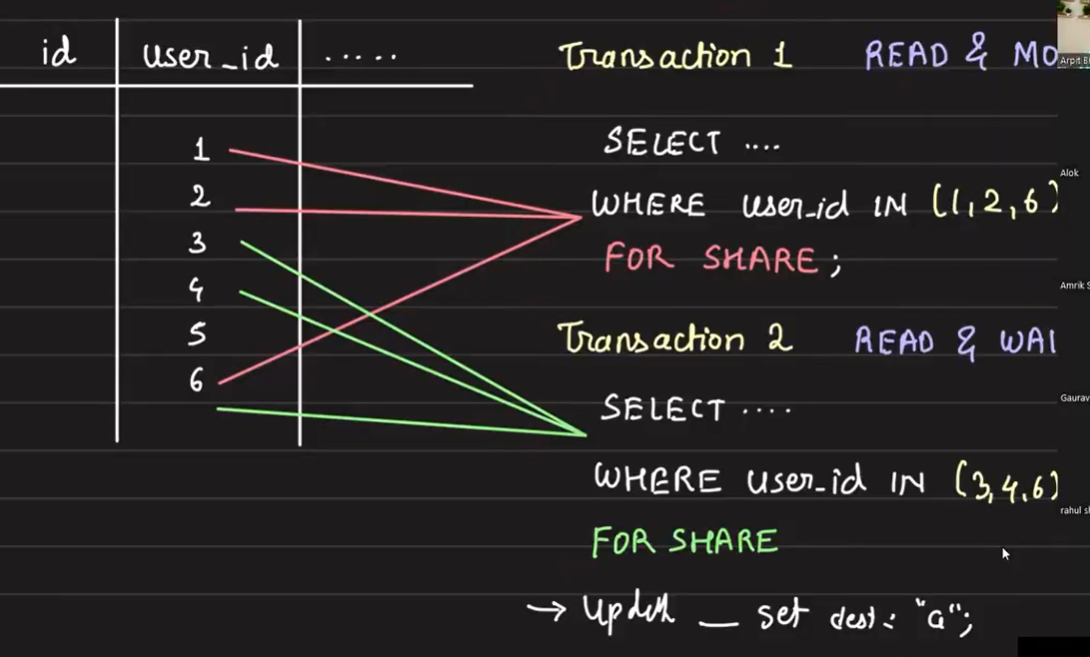 id user_id .....
1
2
3
4
5
6
Transaction 1 READ & MO
SELECT ....
WHERE user_id IN (1,2,6)
FOR SHARE;
Transaction 2 READ & WAI
SELECT ....
WHERE user_id IN (3,4,6)
FOR SHARE
→ set dest = "a";
Arpit B
Alok
Amrik S
Gaurav
rahul s